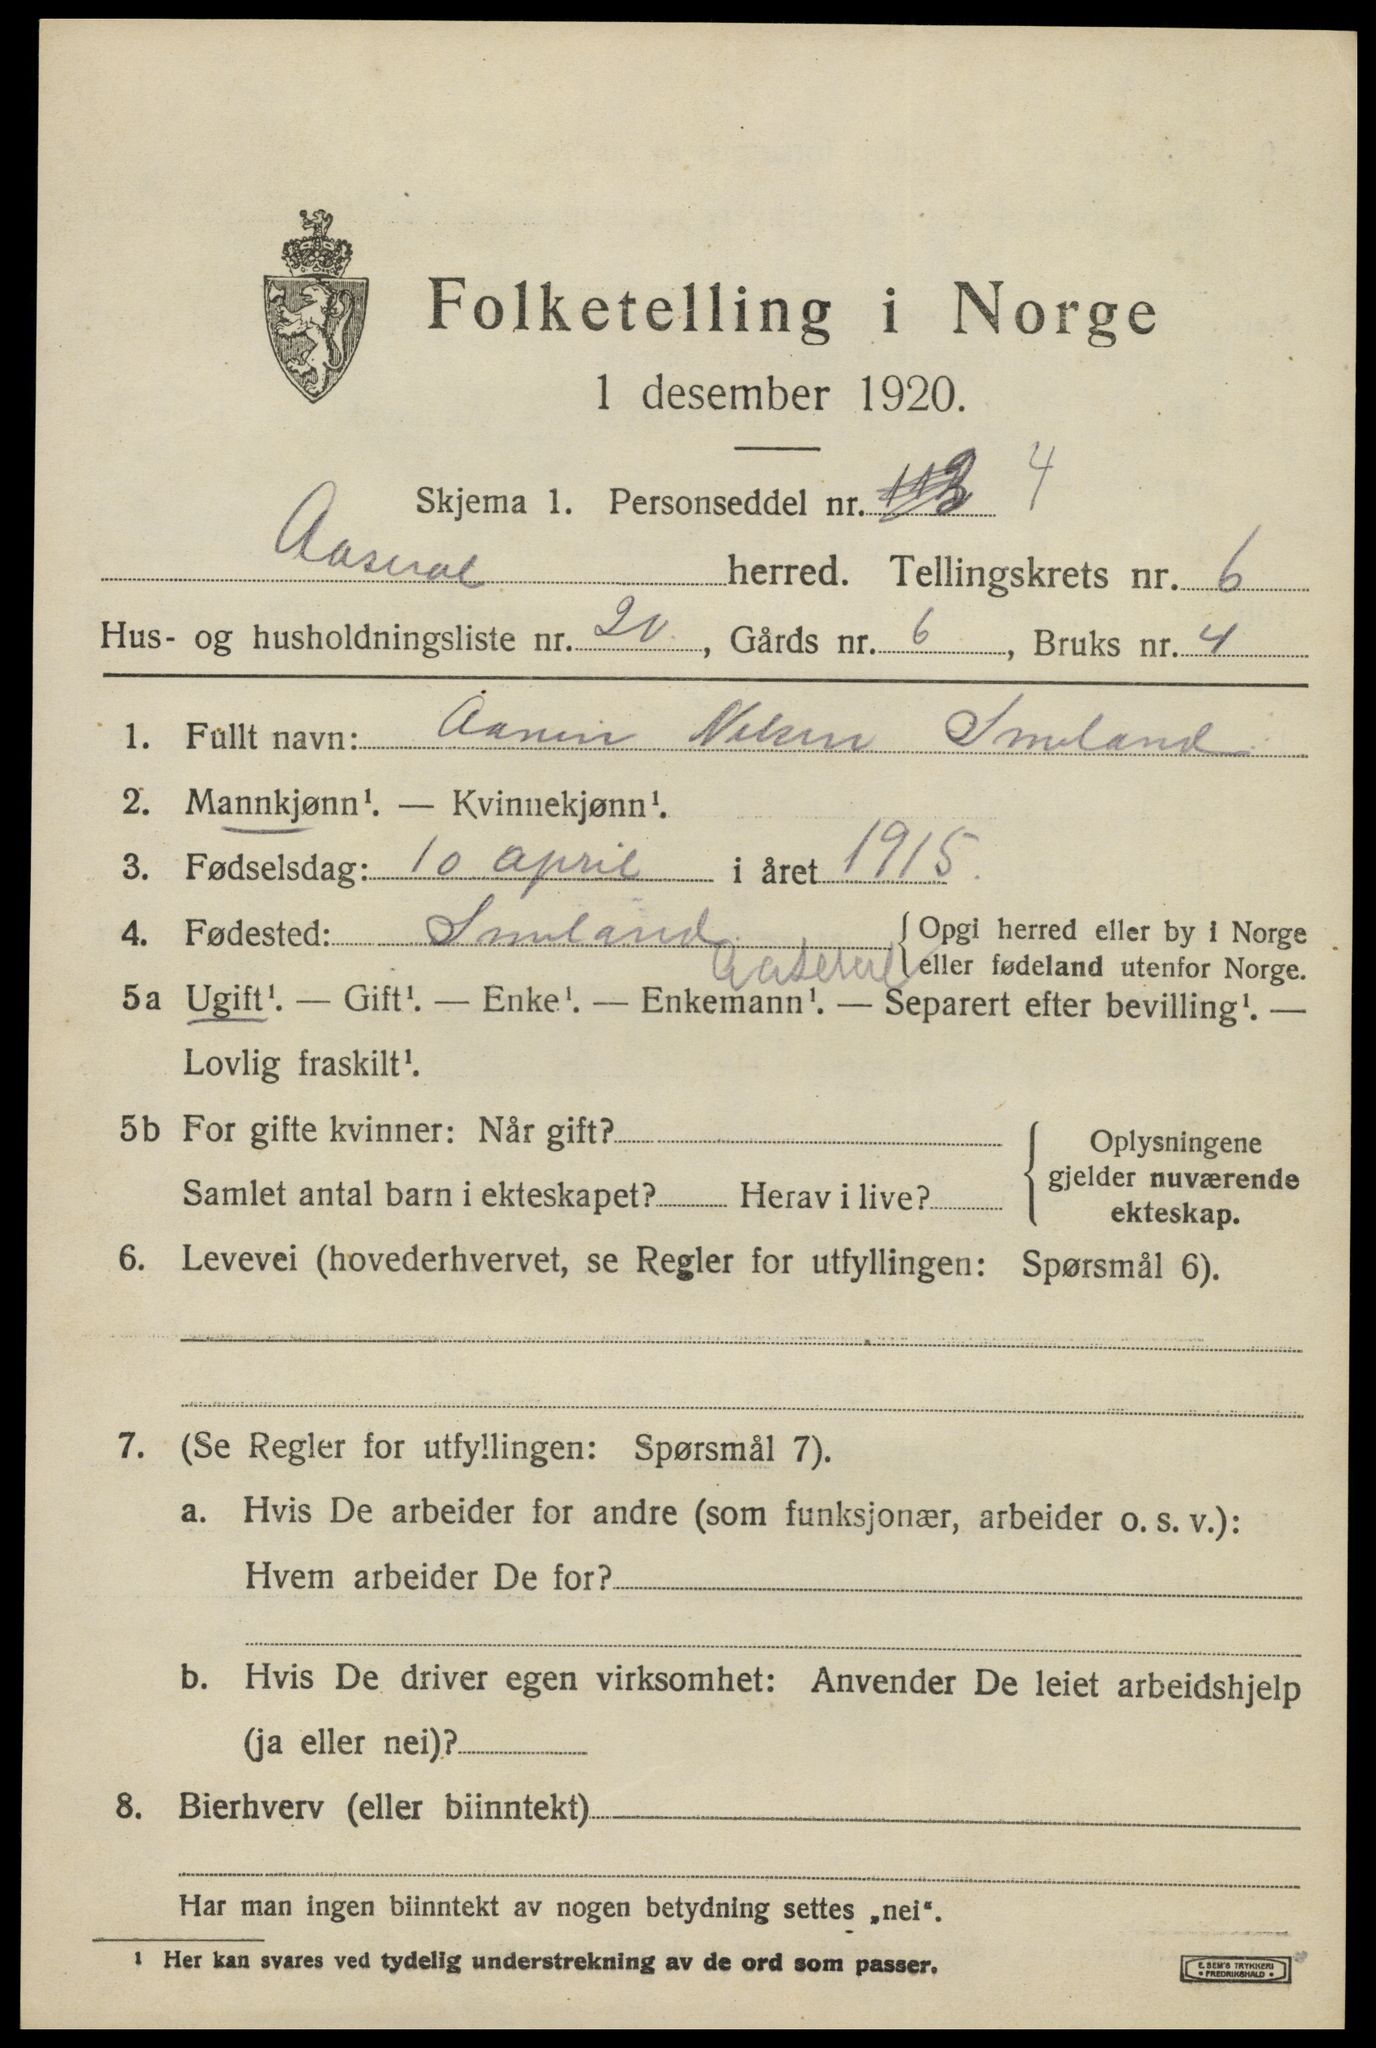 Folketelling i Norge
1 desember 1920.
Skjema 1. Personseddel nr. 4
Aaseral herred. Tellingskrets nr. 6
Hus- og husholdningsliste nr. 20, Gårds nr. 6, Bruks nr. 4
1. Fullt navn: Aanen Nilsen Smeland
2. Mannkjønn¹. — Kvinnekjønn¹.
3. Fødselsdag: 10 april i året 1915.
4. Fødested: Smeland { Opgi herred eller by i Norge
Aaseral eller fødeland utenfor Norge.
5a Ugift¹. — Gift¹. — Enke¹. — Enkemann¹. — Separert efter bevilling¹. —
Lovlig fraskilt¹.
5b For gifte kvinner: Når gift? { Oplysningene
gjelder nuværende
Samlet antal barn i ekteskapet? Herav i live?
ekteskap.
6. Levevei (hovederhvervet, se Regler for utfyllingen: Spørsmål 6).
7. (Se Regler for utfyllingen: Spørsmål 7).
a. Hvis De arbeider for andre (som funksjonær, arbeider o. s. v.):
Hvem arbeider De for?
b. Hvis De driver egen virksomhet: Anvender De leiet arbeidshjelp
(ja eller nei)?
8. Bierhverv (eller biinntekt)
Har man ingen biinntekt av nogen betydning settes „nei“.
1 Her kan svares ved tydelig understrekning av de ord som passer.
E. SEM'S TRYKKERI
• FREDRIKSHALD •